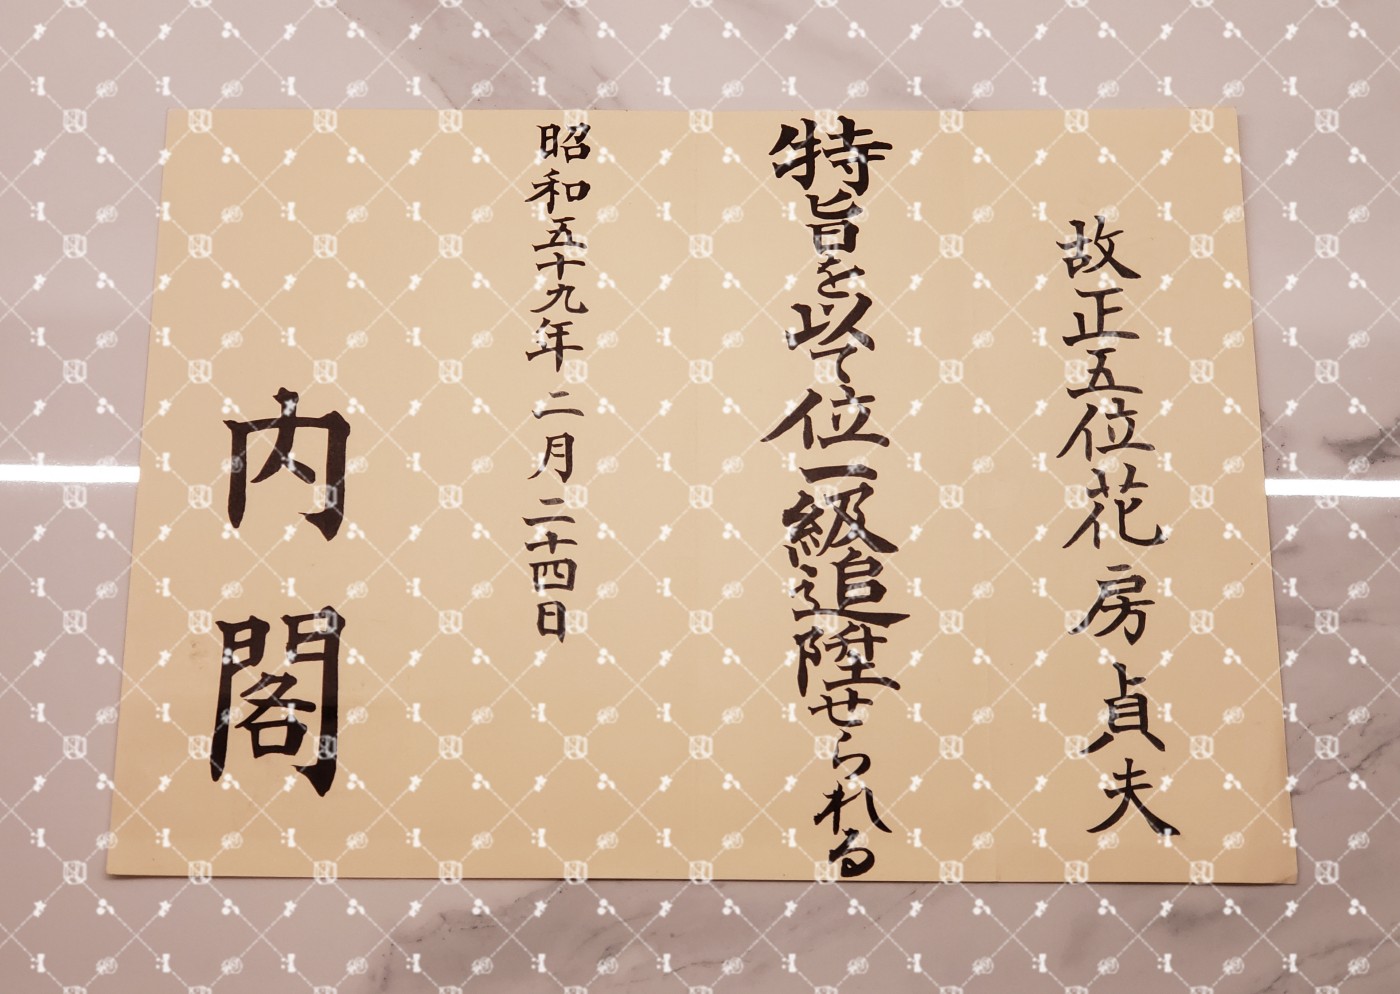 故正五位花房貞夫
特旨を以て位一級追陞せられる
昭和五十九年二月二十四日
内閣